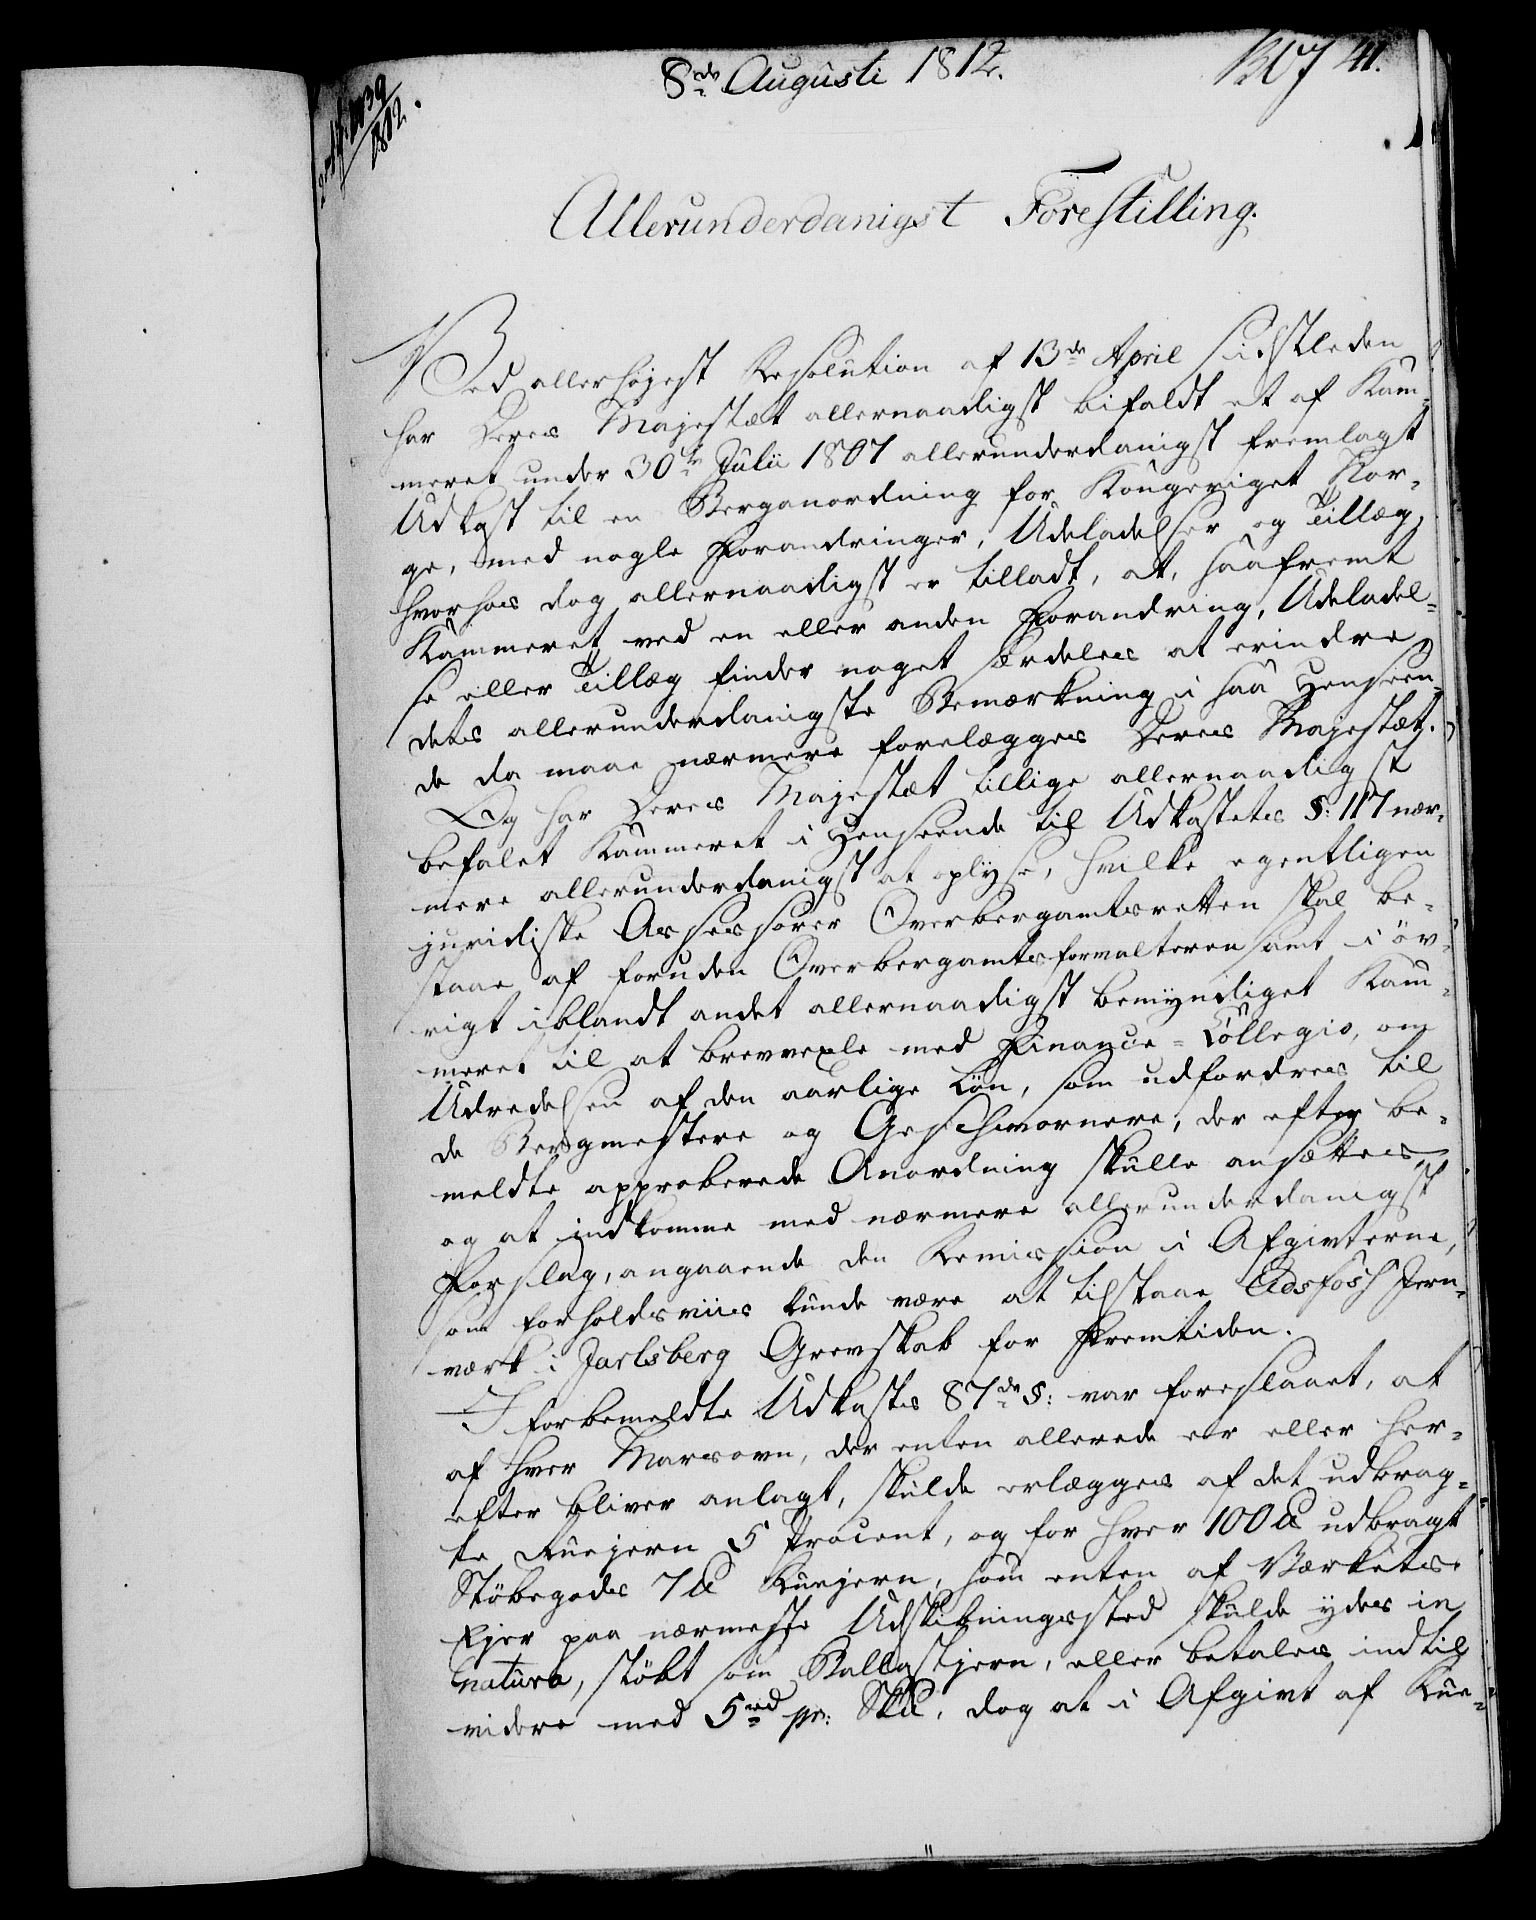 8de Augusti 1812.
41.
1812.
Allerunderdanigst Forestilling.
Ved allerhøjest Resolution af 13de April sidstleden
har Deres Majestæt allernaadigst bifaldt et af Kam-
meret under 30te Julii 1807 allerunderdanigst fremlagt
Udkast til en Berganordning for Kongeriget Nor-
ge, med nogle Forandringer, Udeladelser og Tillæg,
hvorhos dog allernaadigst er tilladt, at, saafremt
Kammeret ved en eller anden Forandring, Udeladel-
se eller Tillæg finder noget særdeles at erindre,
dets allerunderdanigste Bemærkning i saa Henseen-
de da maae nærmere forelægges Deres Majestæt.
Og har Deres Majestæt tillige allernaadigst
befalet Kammeret i Henseende til Udkastets §: 117 nær-
mere allerunderdanigst at oplyse, hvilke egentligen
juridiske Assessorer Overbergamtsretten skal be-
staae af foruden Overbergamtsforvalteren samt i öv-
rigt iblandt andet allernaadigst bemyndiget Kam-
meret til at brevvexle med Finance-Collegio, om
Udredelsen af den aarlige Løn, som udfordres til
de Bergmestere og Geschwornere, der efter be-
meldte approberede Anordning skulle ansættes,
og at indkomme med nærmere allerunderdanigst
Forslag, angaaende den Remission i Afgivterne,
som forholdsviis kunde være at tilstaae Eidsfoss Jern-
værk i Jarlsberg Grevskab for Fremtiden.
I forbemeldte Udkasts 87de §: var foreslaaet, at
af hver Marsovn, der enten allerede er eller her-
efter bliver anlagt, skulde erlægges af det udbrag-
te Ruejern 5 Procent, og for hver 100 ℔ udbragt
Støbegods 7 ℔ Ruejern, som enten af Værkets
Ejer paa nærmeste Udskibningssted skulde ydes in
natura, støbt som Ballastjern, eller betales indtil
videre med 5 rd pr: Sk℔, dog at i Afgivt af Rue-